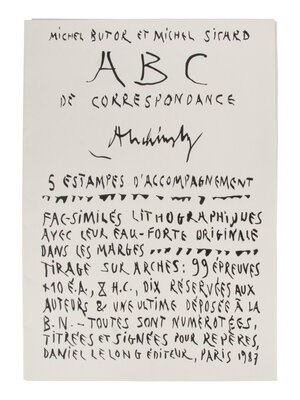 MICHEL BUTOR ET MICHEL SICARD
ABC
DE CORRESPONDANCE
Alechinsky
5 ESTAMPES D'ACCOMPAGNEMENT
FAC-SIMILÉS LITHOGRAPHIQUES
AVEC LEUR EAU-FORTE ORIGINALE
DANS LES MARGES
TIRAGE SUR ARCHES: 99 ÉPREUVES
+10 E.A., 8 H.C., DIX RÉSERVÉES AUX
AUTEURS & UNE ULTIME DÉPOSÉE À LA
B.N. - TOUTES SONT NUMÉROTÉES,
TITRÉES ET SIGNÉES POUR REPÈRES,
DANIEL LELONG ÉDITEUR, PARIS 1987